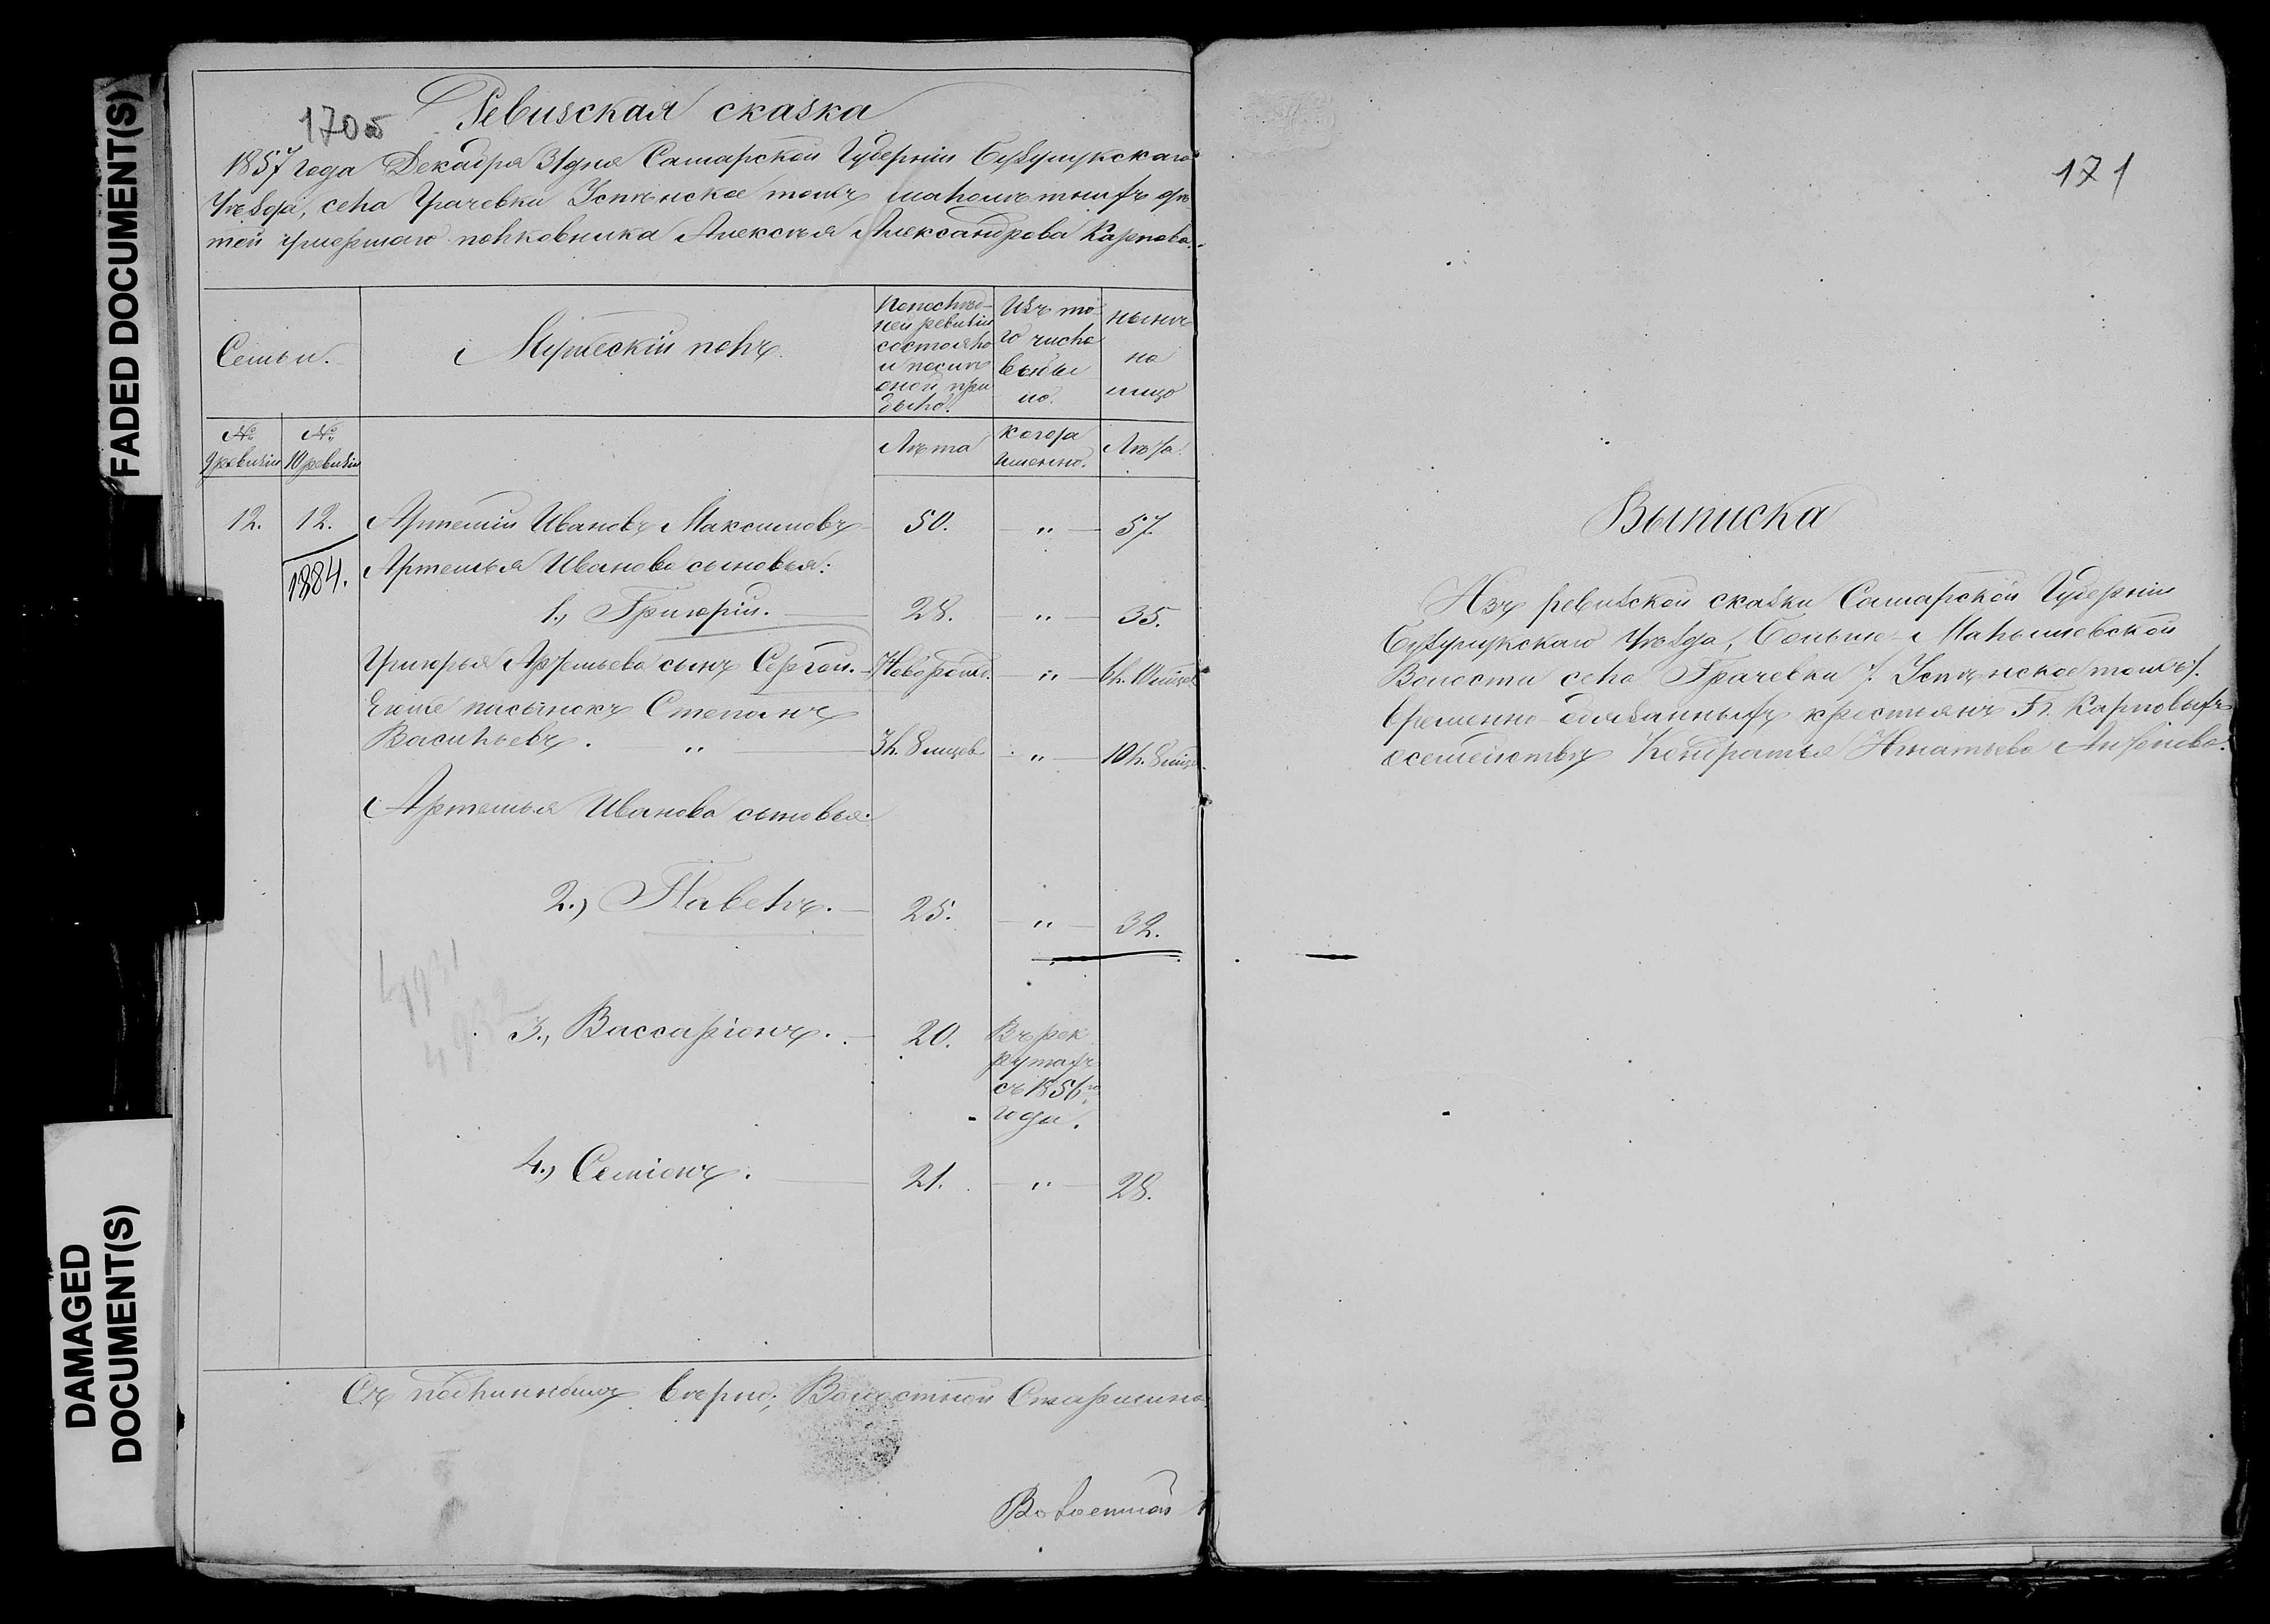 FADED DOCUMENT(S)
DAMAGED
DOCUMENT(S)
170об
Ревизская сказка
1857 года Декабря 31 дня Самарской Губерніи Бузулукскаго
Уѣзда, села Грачевки Успѣнское тожъ малолѣтныхъ дѣ
тей умершаго полковника Алексѣя Александрова Карпова.
Семьи.
Мужескій полъ.
По послѣд-
ней ревизіи
состояло
и послѣ
оной при
было.
Изъ то-
го числа
выбы
ло.
нынѣ
на
лицо
№
9 ревизіи
№
10 ревизіи
Лѣта
когда
именно.
Лѣта.
12. 12. Артемій Ивановъ Максимовъ 50. " 57.
1884. Артемья Иванова сыновья:
1., Григорій. 28. " 35.
Григорья Артемьева сынъ Сергѣй. Новорожд. " 6 л. 10 мѣсяц.
Его же пасынокъ Степанъ
Васильевъ. " 3 л. 8 мѣсяцев " 10 л. 8 мѣсяц.
Артемья Иванова сыновья:
2.) Павелъ. 25. " 32.
3., Вассаріонъ. 20. Въ рек
рутахъ
съ 1856го
года.
4.) Семіонъ. 21. " 28.
Съ подлиннымъ вѣрно; Волостной Старшина
171
Выписка
Изъ ревизской сказки Самарской Губерніи
Бузулукскаго Уѣзда, Больше-Малышевской
Волости села Грачевки /. Успѣнское тожъ /.
временно-обязанныхъ крестьянъ Гг. Карповыхъ
о семействѣ Кондратья Игнатьева Антонова.